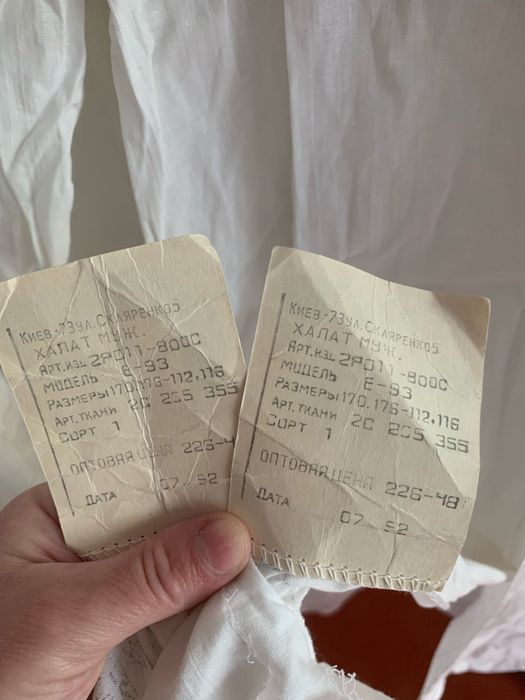 КИЕВ-73 УЛ.СКЛЯРЕНКО 5
ХАЛАТ МУЖ.
АРТ.ИЗД. 2Р011-800С
МОДЕЛЬ Е-93
РАЗМЕРЫ 170,176-112,116
АРТ.ТКАНИ 2С 205 355
СОРТ 1
ОПТОВАЯ ЦЕНА 226-4
ДАТА 07 92
КИЕВ-73 УЛ.СКЛЯРЕНКО 5
ХАЛАТ МУЖ.
АРТ.ИЗД. 2Р011-800С
МОДЕЛЬ Е-93
РАЗМЕРЫ 170,176-112,116
АРТ.ТКАНИ 2С 205 355
СОРТ 1
ОПТОВАЯ ЦЕНА 226-48
ДАТА 07 92